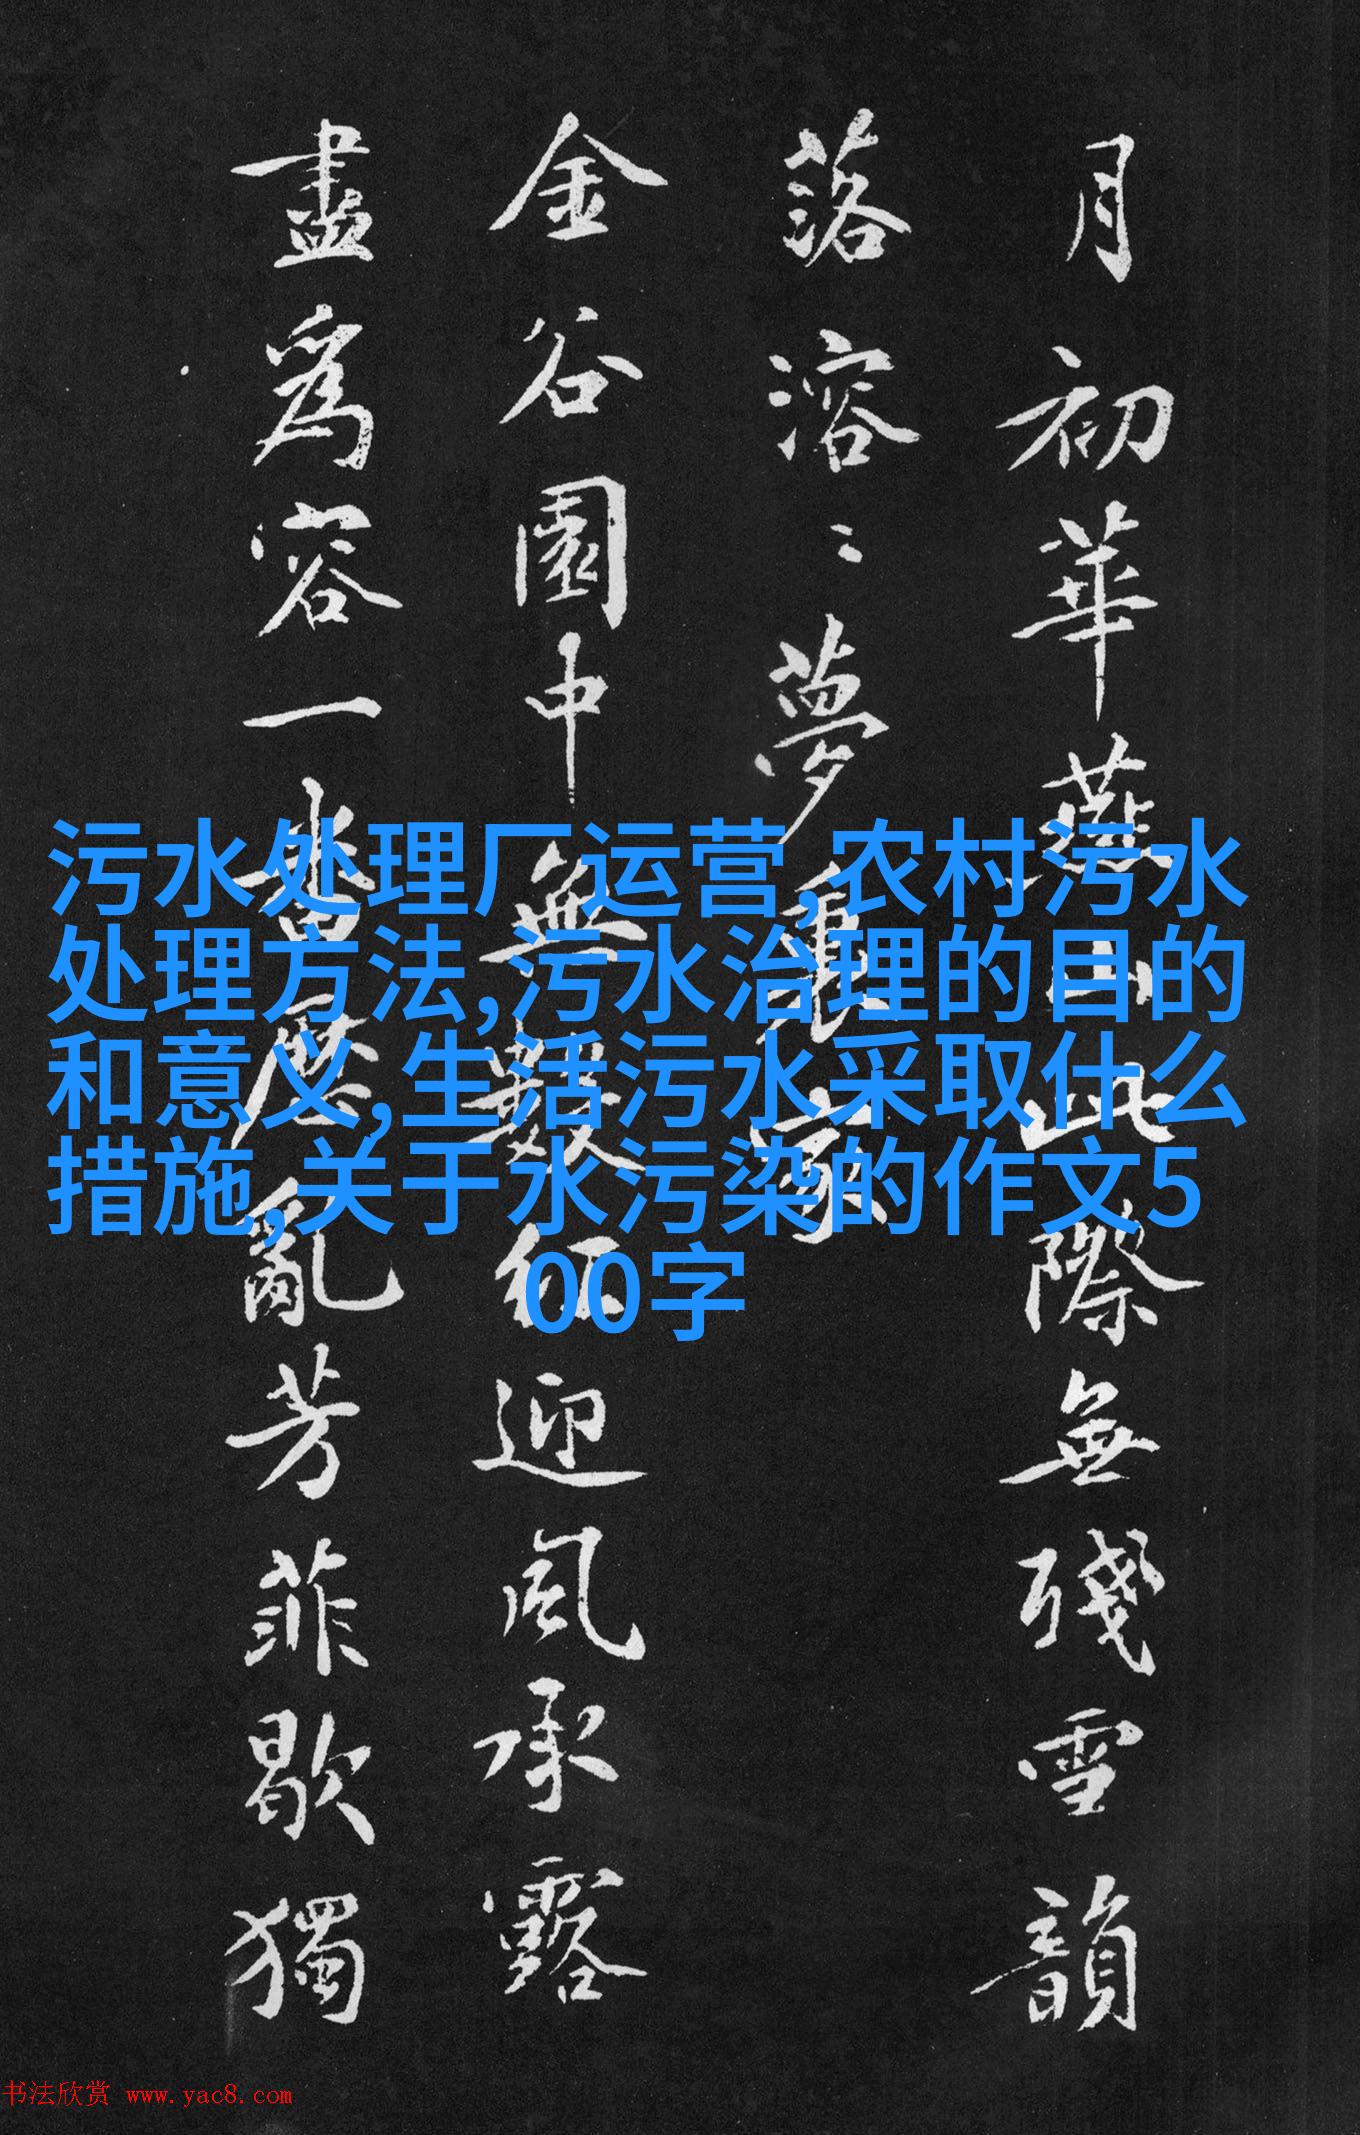 月初華燕山此際無殘雪韻
落溶〻夢裏家
金谷園中無數紅迎風承露
盡為容一番歷亂芳菲歇獨
污水处理厂运营,农村污水
处理方法,污水治理的目的
和意义,生活污水采取什么
措施,关于水污染的作文5
00字
书法欣赏 www.yac8.com